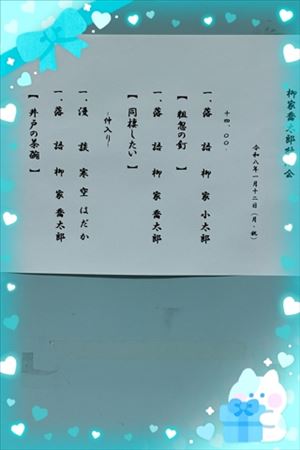 柳家喬太郎 会
令和八年一月十二日（月・祝）
十四：〇〇
一、落 語 柳 家 小太郎
【 粗忽の釘 】
一、落 語 柳 家 喬太郎
【 同棲したい 】
~仲入り~
一、漫 談 寒 空 はだか
一、落 語 柳 家 喬太郎
【 井戸の茶碗 】